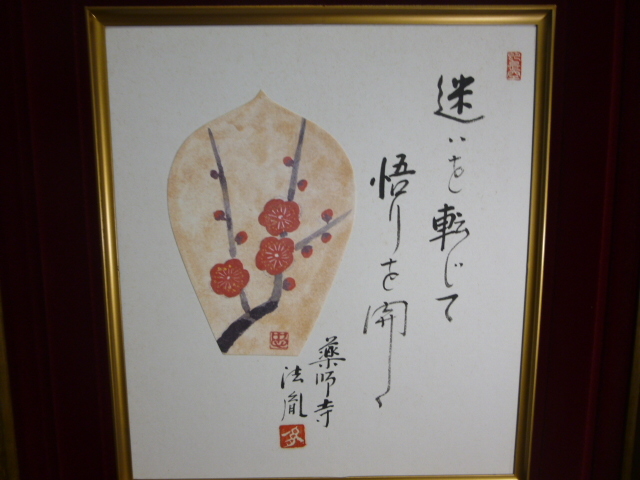 迷いを転じて
悟りを開く
薬師寺
法胤